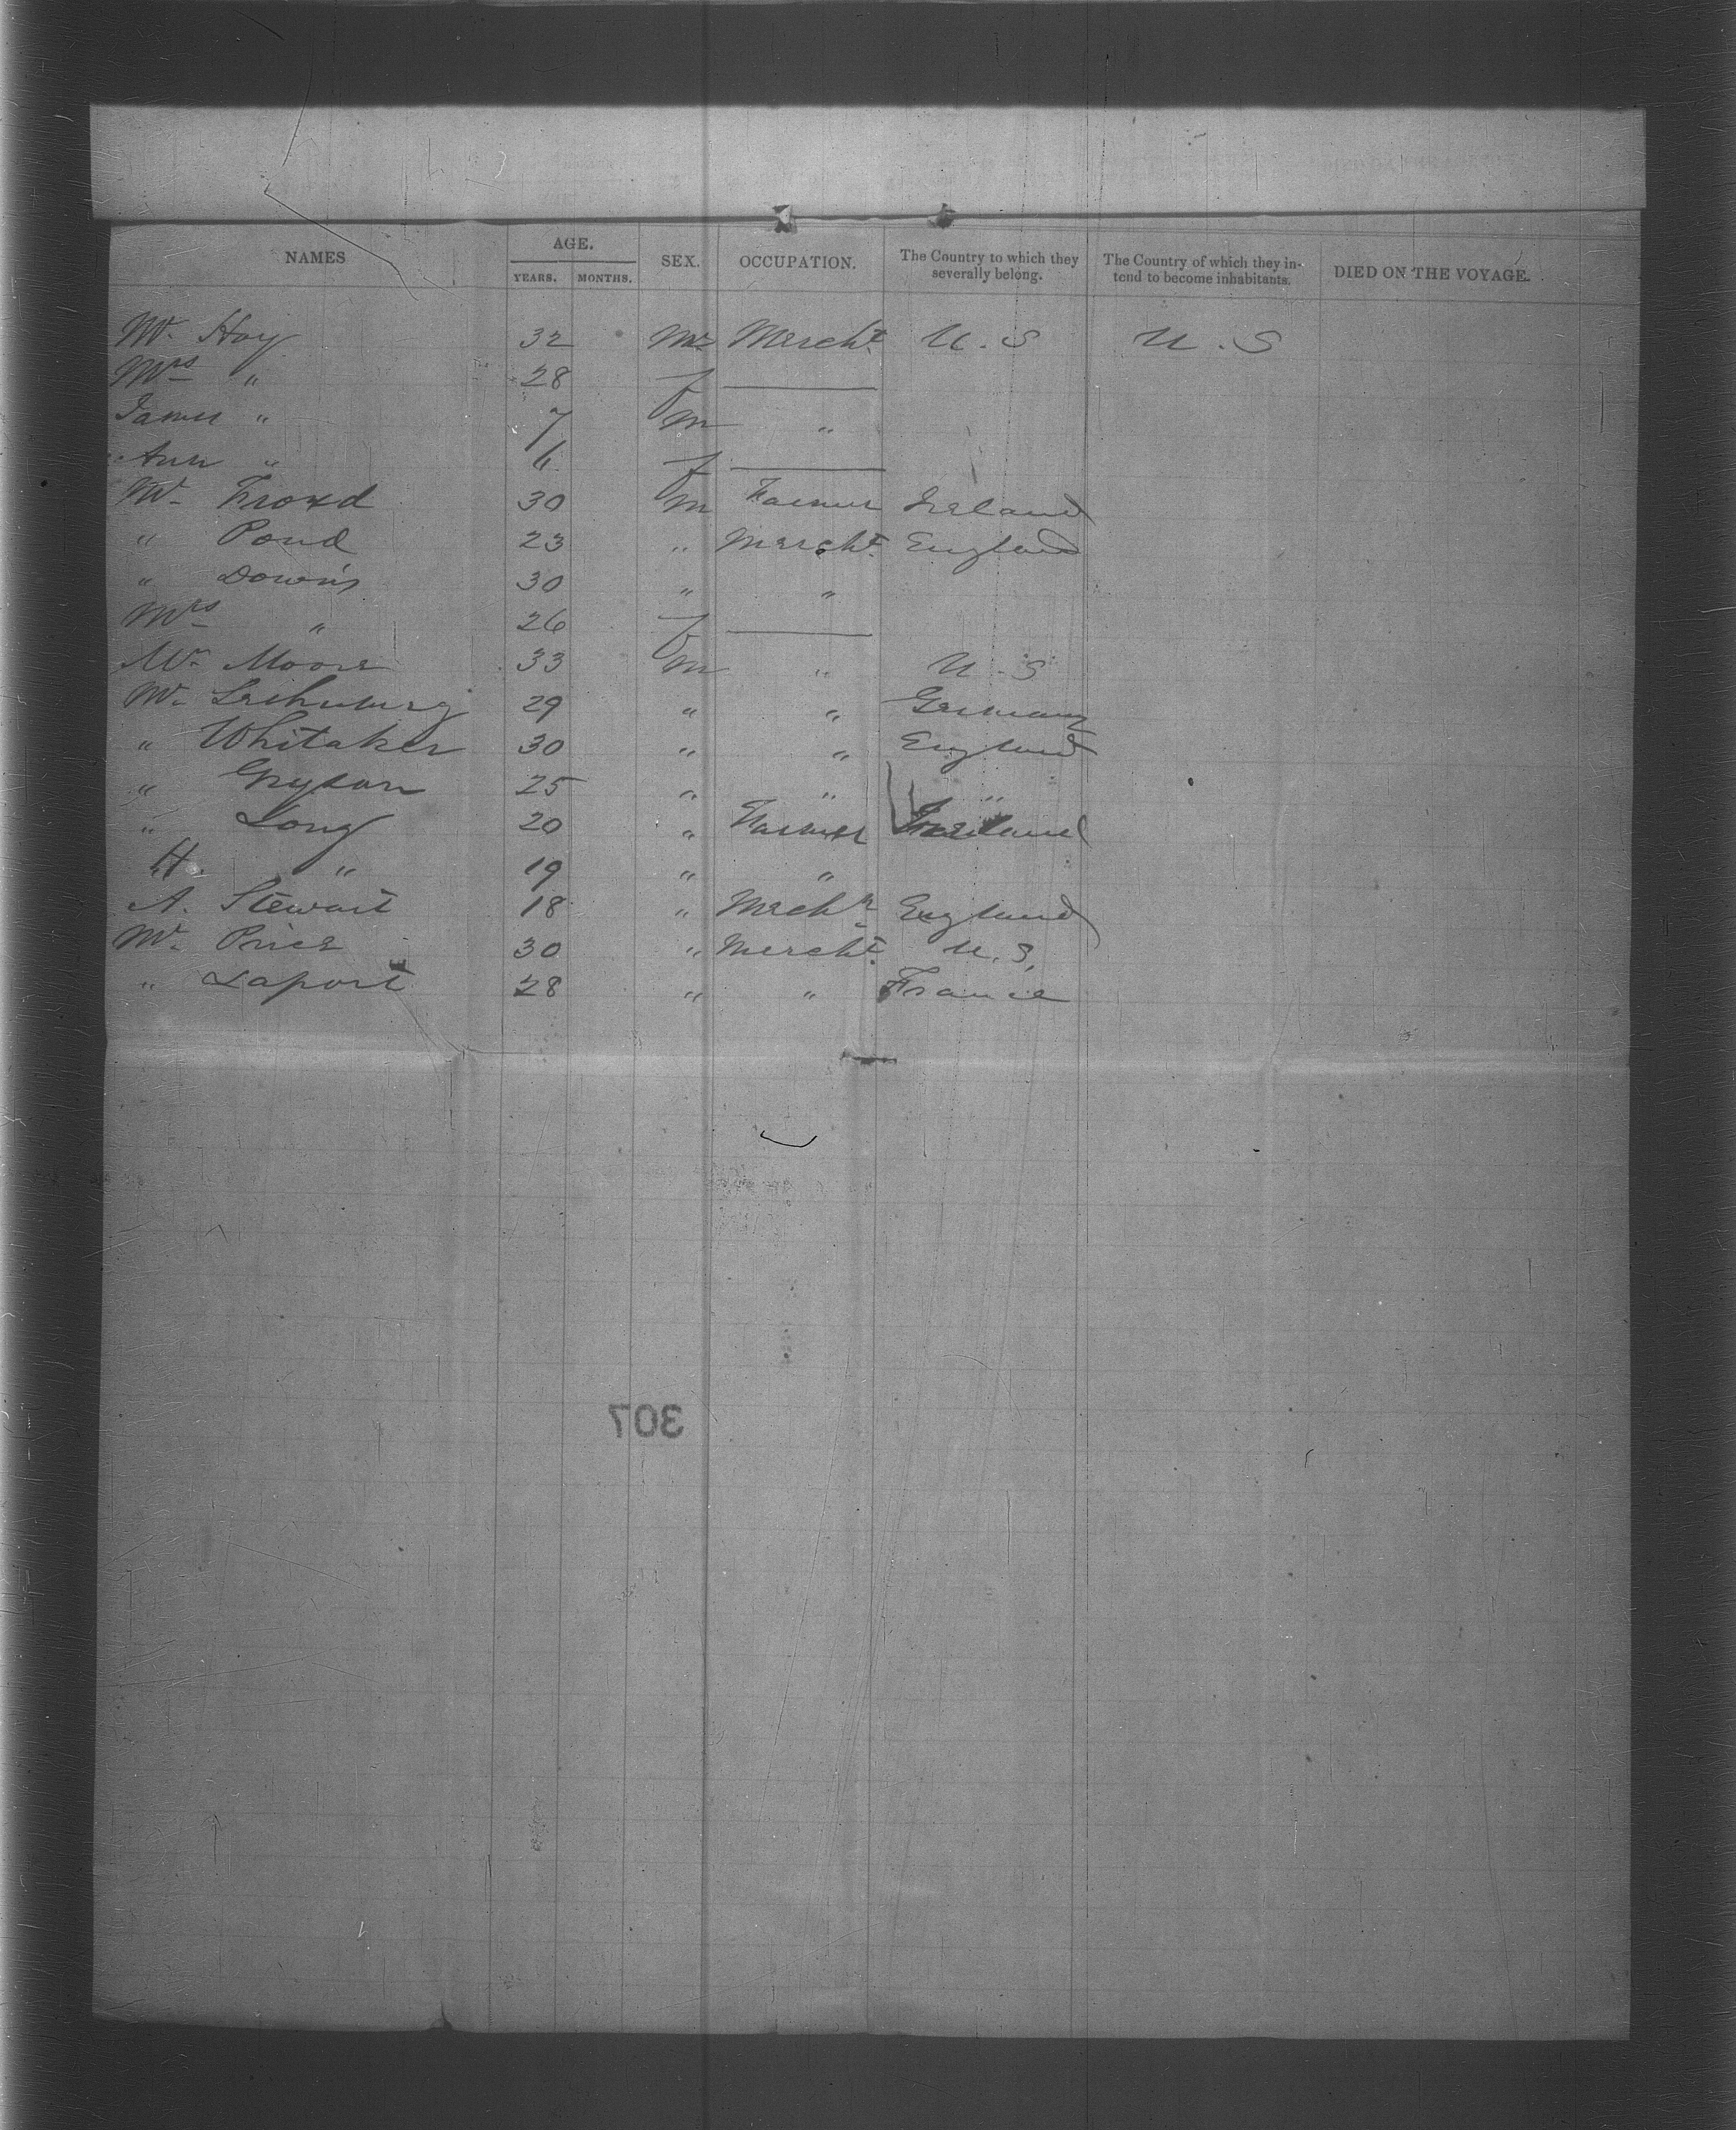 NAMES AGE. YEARS. MONTHS. SEX. OCCUPATION. The Country to which they severally belong. The Country of which they intend to become inhabitants. DIED ON THE VOYAGE.
Mr. Hay 32 M Mercht. U. S U. S
Mrs " 28 f
James " 7 m "
Ann " 6 f
Mr. 30 m Farmer Ireland
" Pond 23 " Mercht. England
" Downs 30 " "
Mrs " 26 f
Mr. Moore 33 m " U. S
Mr. 29 " " Germany
" Whitaker 30 " " England
" 25 " " "
" Long 20 " Farmer Ireland
H. " 19 " "
A. Stewart 18 " Mechc England
Mr. Price 30 " Mercht. U. S.
" Laport 28 " " France
307